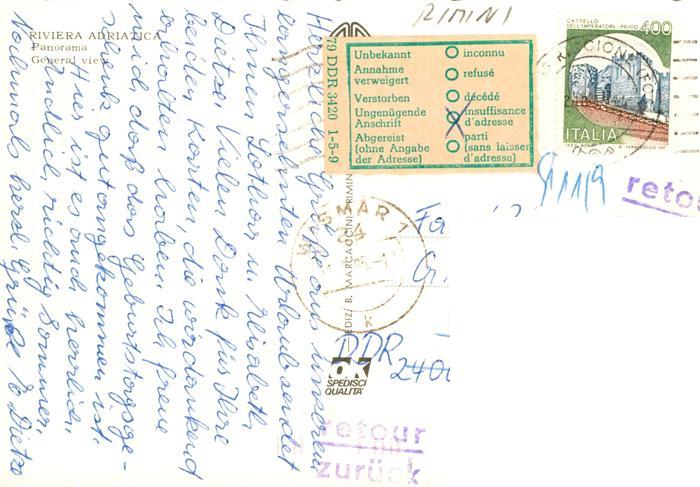 RIVIERA ADRIATICA
Panorama
General view
Herzliche Grüße aus unserem
langersehnten Urlaub sendet
Ihnen Lothar u. Elisabeth
Dietze. Vielen Dank für Ihre
beiden Karten, die wir dankend
erhalten haben. Ich freue
mich, daß das Geburtstagsge-
schenk gut angekommen ist.
Hier ist es auch herrlich,
endlich richtig Sommer.
Nochmals herzl. Grüße E. Dietze
RIMINI
79 DDR 3420 1-5-9
Unbekannt inconnu
Annahme verweigert refusé
Verstorben décédé
Ungenügende Anschrift insuffisance d'adresse
Abgereist (ohne Angabe der Adresse) parti (sans laisser d'adresse)
CASTELLO
DELL'IMPERATORE - PRATO
400
ITALIA
retou
WISMAR 1
24
EDIZ. B. MARCACCINI - RIMINI
Fa
DDR
2400
OK
SPEDISCI
QUALITA'
retour
zurück